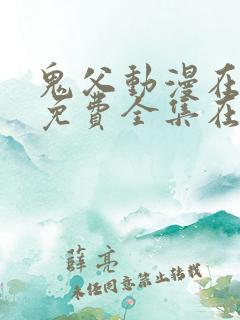 鬼父動漫在
免費全集在
薛亮
未经同意禁止转载